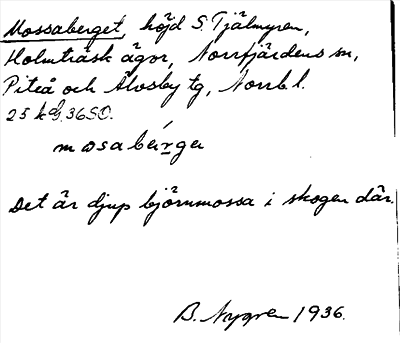 Mossaberget, höjd S. Tjälmyren,
Holmträsk ägor, Norrfjärdens sn,
Piteå och Älvsby tg, Norrb. l.
25 kbl. 36SO.
mosabérga
Det är djup björnmossa i skogen där.
B. Nygren 1936.